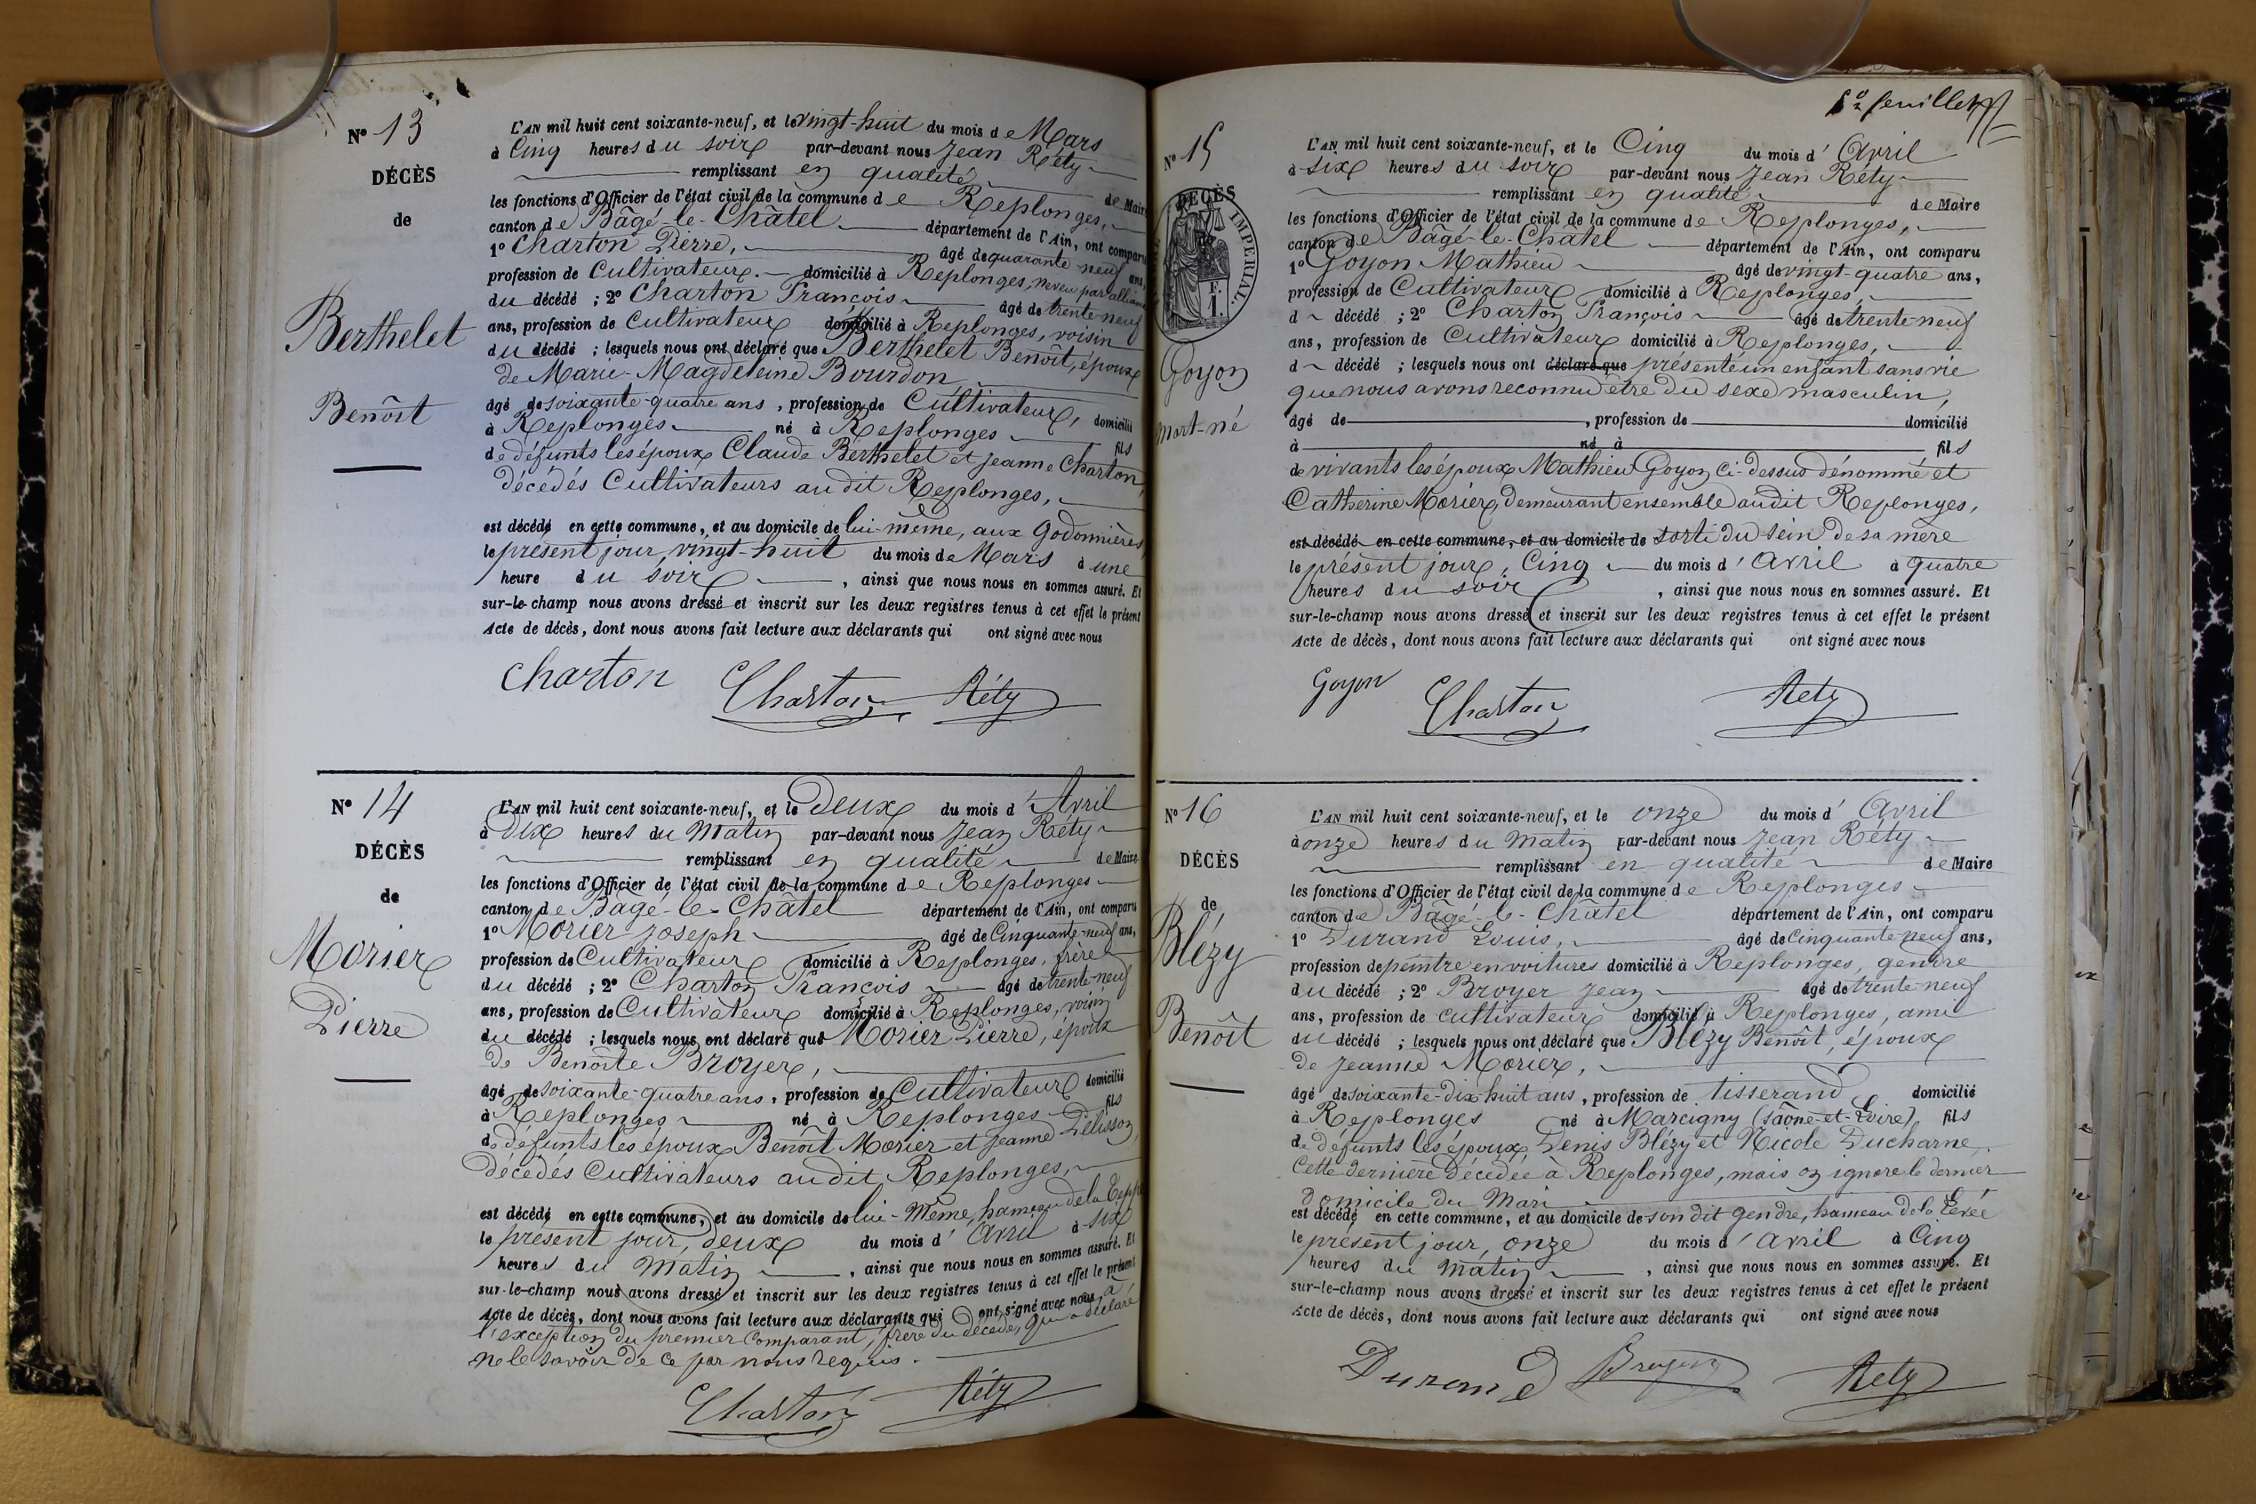 N° 13
DÉCÈS
de
Berthelet
Benôit
L'AN mil huit cent soixante-neuf, et le vingt-huit du mois de Mars
à Cinq heures du soir par-devant nous Jean Réty
remplissant en qualité de Maire
les fonctions d'Officier de l'état civil de la commune de Replonges,
canton de Bâgé-le-Châtel département de l'Ain, ont comparu
1° Charton Pierre, âgé de quarante-neuf ans,
profession de Cultivateur. domicilié à Replonges, neveu par alliance
du décédé ; 2° Charton François âgé de trente-neuf
ans, profession de Cultivateur domicilié à Replonges, voisin
du décédé ; lesquels nous ont déclaré que Berthelet Benoît, époux
de Marie-Magdeleine Bourdon,
âgé de soixante-quatre ans, profession de Cultivateur, domicilié
à Replonges né à Replonges fils
de défunts les époux Claude Berthelet et Jeanne Charton,
décédés Cultivateurs au dit Replonges,
est décédé en cette commune, et au domicile de lui-même, aux Godonnières
le présent jour, vingt-huit du mois de Mars à une
heure du soir, ainsi que nous nous en sommes assuré. Et
sur-le-champ nous avons dressé et inscrit sur les deux registres tenus à cet effet le présent
Acte de décès, dont nous avons fait lecture aux déclarants qui ont signé avec nous
Charton Charton Réty
N° 14
DÉCÈS
de
Morier
Pierre
L'AN mil huit cent soixante-neuf, et le Deux du mois d'Avril
à Dix heures du Matin par-devant nous Jean Réty
remplissant en qualité de Maire
les fonctions d'Officier de l'état civil de la commune de Replonges
canton de Bâgé-le-Châtel département de l'Ain, ont comparu
1° Morier Joseph âgé de Cinquante-neuf ans,
profession de Cultivateur domicilié à Replonges, frère
du décédé ; 2° Charton François âgé de trente-neuf
ans, profession de Cultivateur domicilié à Replonges, voisin
du décédé ; lesquels nous ont déclaré que Morier Pierre, époux
de Benoîte Broyer,
âgé de soixante-quatre ans, profession de Cultivateur domicilié
à Replonges né à Replonges fils
de défunts les époux Benoît Morier et Jeanne Pélisson,
décédés Cultivateurs au dit Replonges,
est décédé en cette commune, et au domicile de lui-Même, hameau de la
le présent jour, deux du mois d'Avril à six
heures du Matin, ainsi que nous nous en sommes assuré. Et
sur-le-champ nous avons dressé et inscrit sur les deux registres tenus à cet effet le présent
Acte de décès, dont nous avons fait lecture aux déclarants qui ont signé avec nous, à
l'exception du premier Comparant, frère du décédé, qui a déclaré
ne le savoir de ce par nous requis.
Charton Réty
feuillet
N° 15
DÉCÈS
IMPÉRIAL.
F.
1.
Goyon
mort-né
L'AN mil huit cent soixante-neuf, et le Cinq du mois d'Avril
à six heures du soir par-devant nous Jean Réty
remplissant en qualité de Maire
les fonctions d'Officier de l'état civil de la commune de Replonges,
canton de Bâgé-le-Châtel département de l'Ain, ont comparu
1° Goyon Mathieu âgé de vingt-quatre ans,
profession de Cultivateur domicilié à Replonges,
d décédé ; 2° Charton François âgé de trente-neuf
ans, profession de Cultivateur domicilié à Replonges,
d décédé ; lesquels nous ont déclaré que présenté un enfant sans vie
que nous avons reconnu être du sexe masculin,
âgé de , profession de domicilié
à né à fils
de vivants les époux Mathieu Goyon ci-dessus dénommé et
Catherine Morier, demeurant ensemble au dit Replonges,
est décédé en cette commune, et au domicile de sorti du sein de sa mère
le présent jour, Cinq du mois d'Avril à quatre
heures du soir, ainsi que nous nous en sommes assuré. Et
sur-le-champ nous avons dressé et inscrit sur les deux registres tenus à cet effet le présent
Acte de décès, dont nous avons fait lecture aux déclarants qui ont signé avec nous
Goyon Charton Réty
N° 16
DÉCÈS
de
Blézy
Benôit
L'AN mil huit cent soixante-neuf, et le onze du mois d'Avril
à onze heures du Matin par-devant nous Jean Réty
remplissant en qualité de Maire
les fonctions d'Officier de l'état civil de la commune de Replonges
canton de Bâgé-le-Châtel département de l'Ain, ont comparu
1° Durand Louis, âgé de Cinquante-neuf ans,
profession de peintre en voitures domicilié à Replonges, gendre
du décédé ; 2° Broyer Jean âgé de trente-neuf
ans, profession de cultivateur domicilié à Replonges, ami
du décédé ; lesquels nous ont déclaré que Blézy Benoît, époux
de Jeanne Morier,
âgé de soixante-dix-huit ans, profession de tisserand domicilié
à Replonges né à Marcigny (Saône-et-Loire), fils
de défunts les époux Denis Blézy et Nicole Ducharne,
Cette dernière décédée à Replonges, mais on ignore le dernier
domicile du Mari
est décédé en cette commune, et au domicile de son dit gendre, hameau de la Levée
le présent jour, onze du mois d'Avril à Cinq
heures du Matin, ainsi que nous nous en sommes assuré. Et
sur-le-champ nous avons dressé et inscrit sur les deux registres tenus à cet effet le présent
Acte de décès, dont nous avons fait lecture aux déclarants qui ont signé avec nous
Durand Broyer Réty